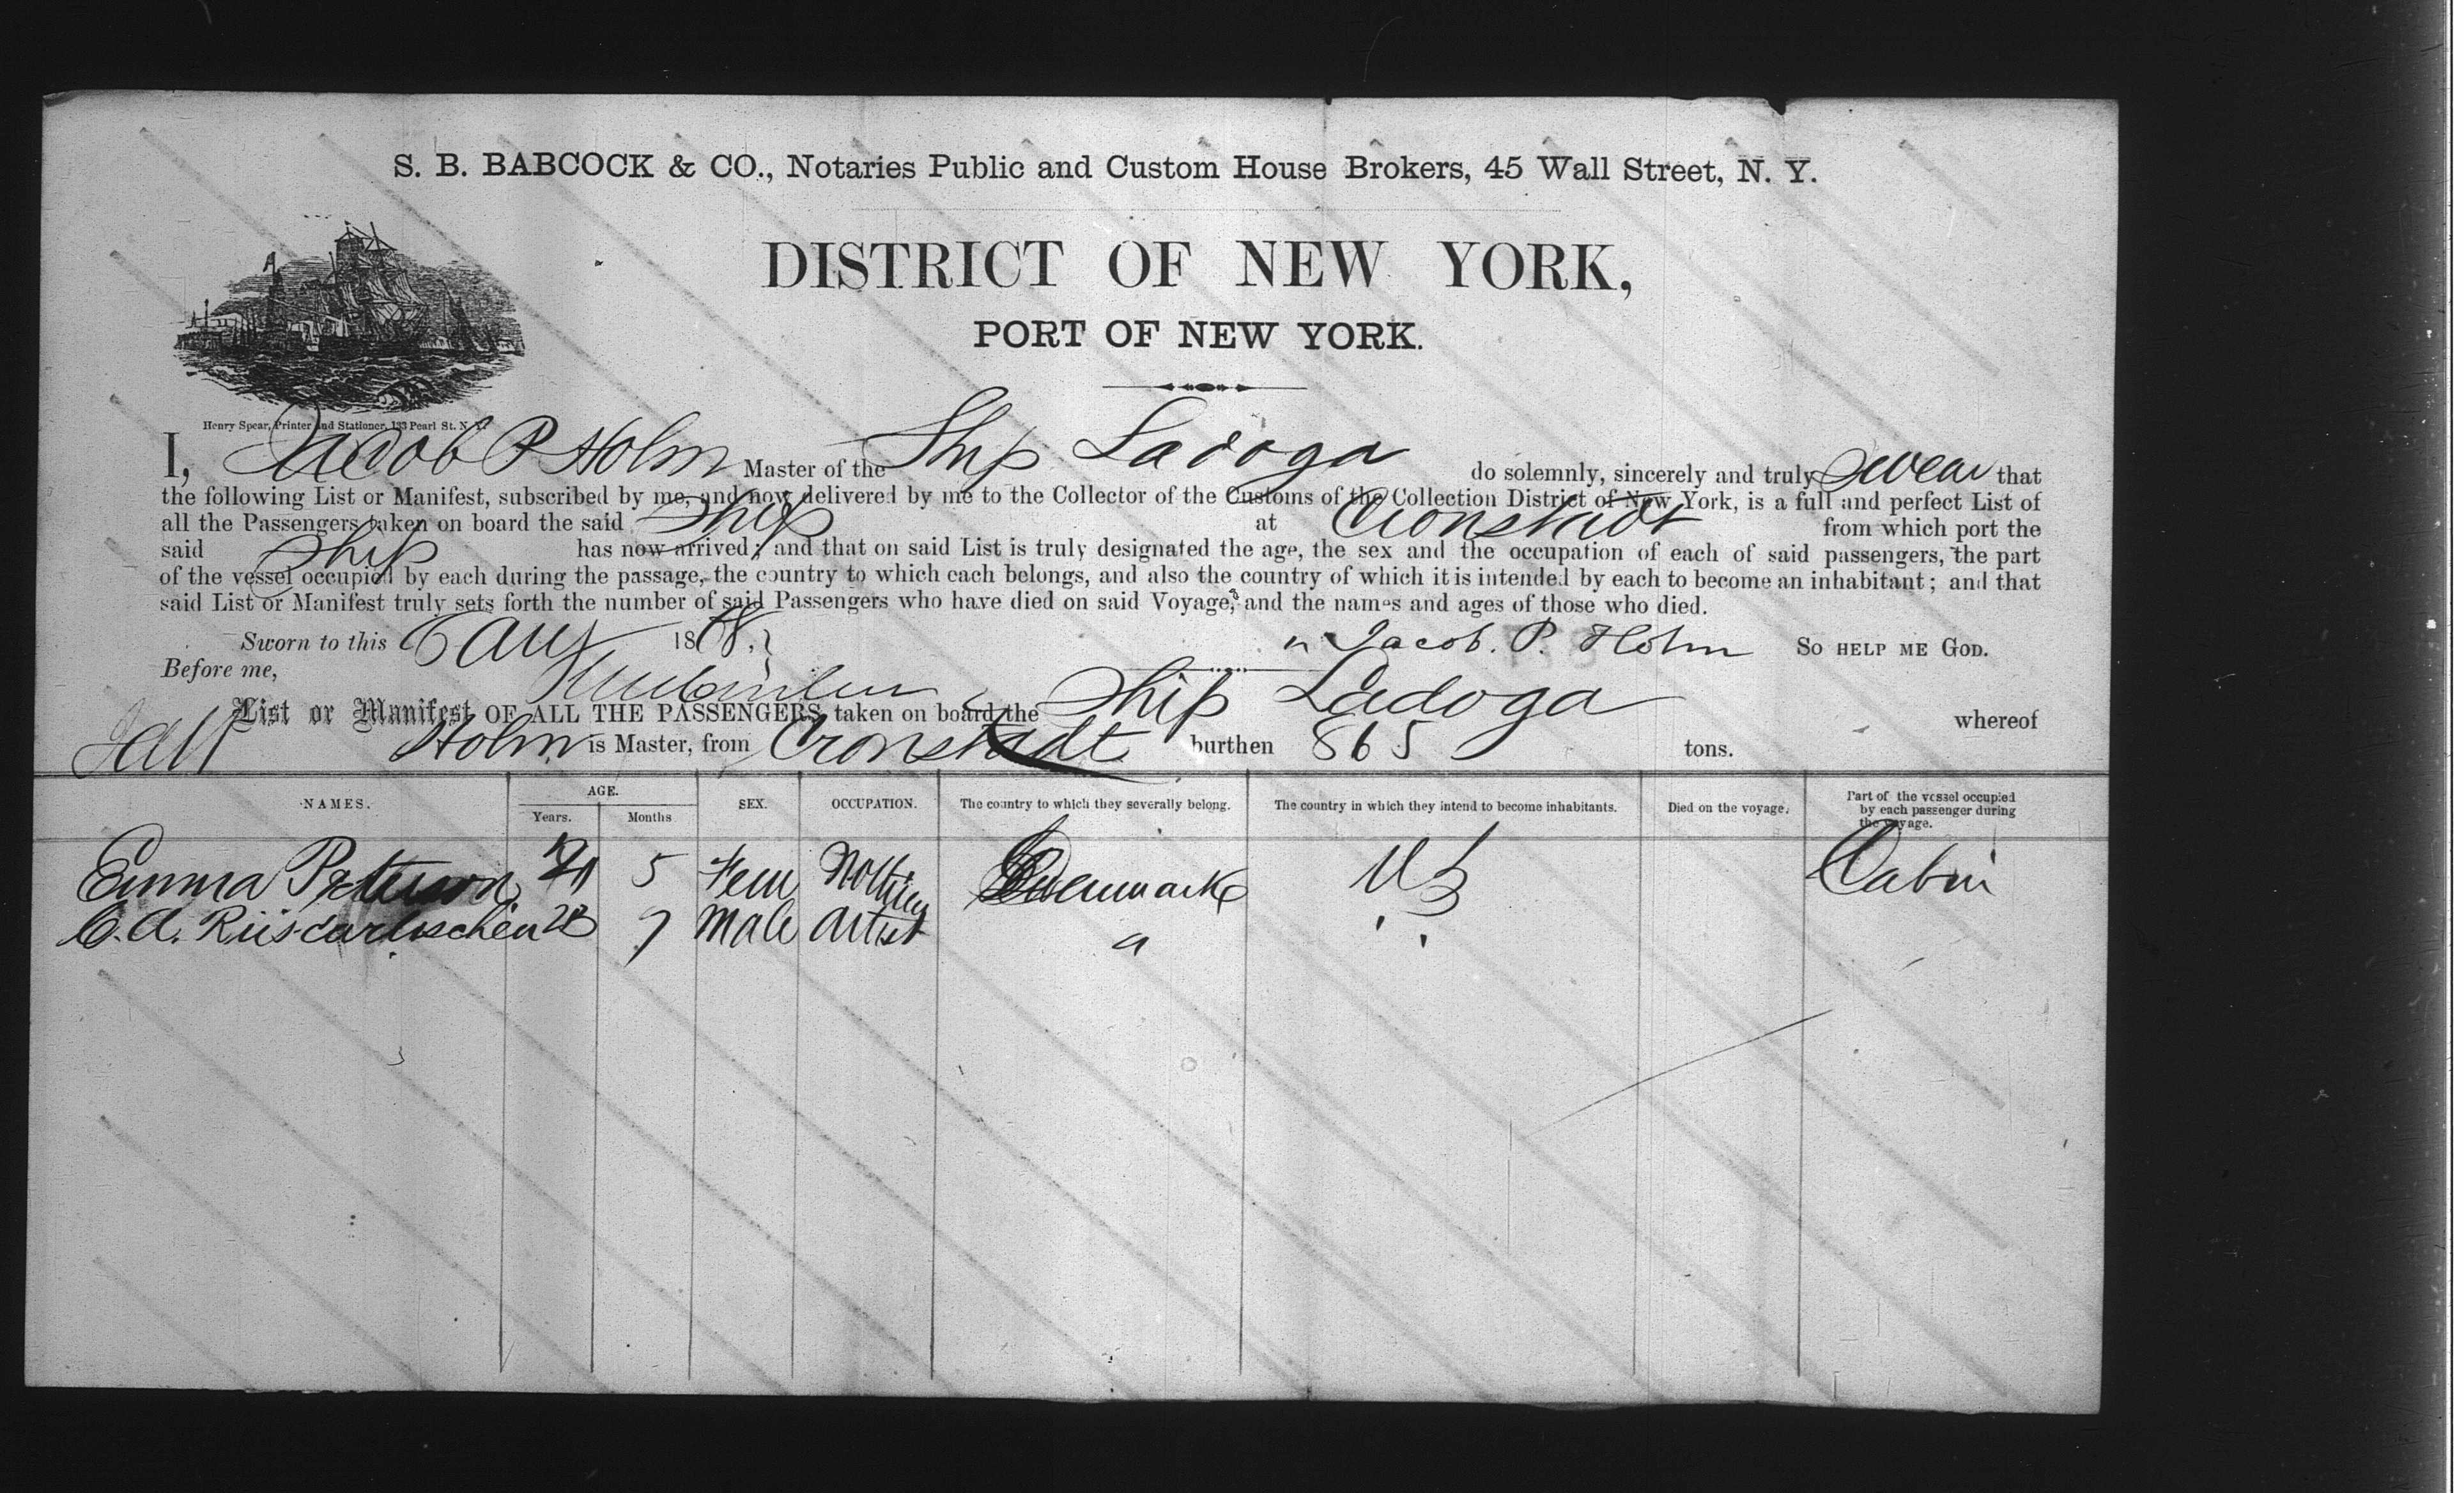 S. B. BABCOCK & CO., Notaries Public and Custom House Brokers, 45 Wall Street, N. Y.
DISTRICT OF NEW YORK,
PORT OF NEW YORK.
Henry Spear, Printer and Stationer, 133 Pearl St. N. Y.
I, Jacob P Holm Master of the Ship Ladoga do solemnly, sincerely and truly swear that
the following List or Manifest, subscribed by me, and now delivered by me to the Collector of the Customs of the Collection District of New York, is a full and perfect List of
all the Passengers taken on board the said Ship at Cronstadt from which port the
said Ship has now arrived; and that on said List is truly designated the age, the sex and the occupation of each of said passengers, the part
of the vessel occupied by each during the passage, the country to which each belongs, and also the country of which it is intended by each to become an inhabitant; and that
said List or Manifest truly sets forth the number of said Passengers who have died on said Voyage, and the names and ages of those who died.
Sworn to this 6 Aug 1868. Jacob. P. Holm SO HELP ME GOD.
Before me,
List or Manifest OF ALL THE PASSENGERS taken on board the Ship Ladoga whereof
Holm is Master, from Cronstadt burthen 865 tons.
NAMES. AGE. SEX. OCCUPATION. The country to which they severally belong. The country in which they intend to become inhabitants. Died on the voyage. Part of the vessel occupied by each passenger during the voyage.
Years. Months
Emma Peterson 5 Fem Nothing Denmark US Cabin
C. A. 28 7 Male Artist